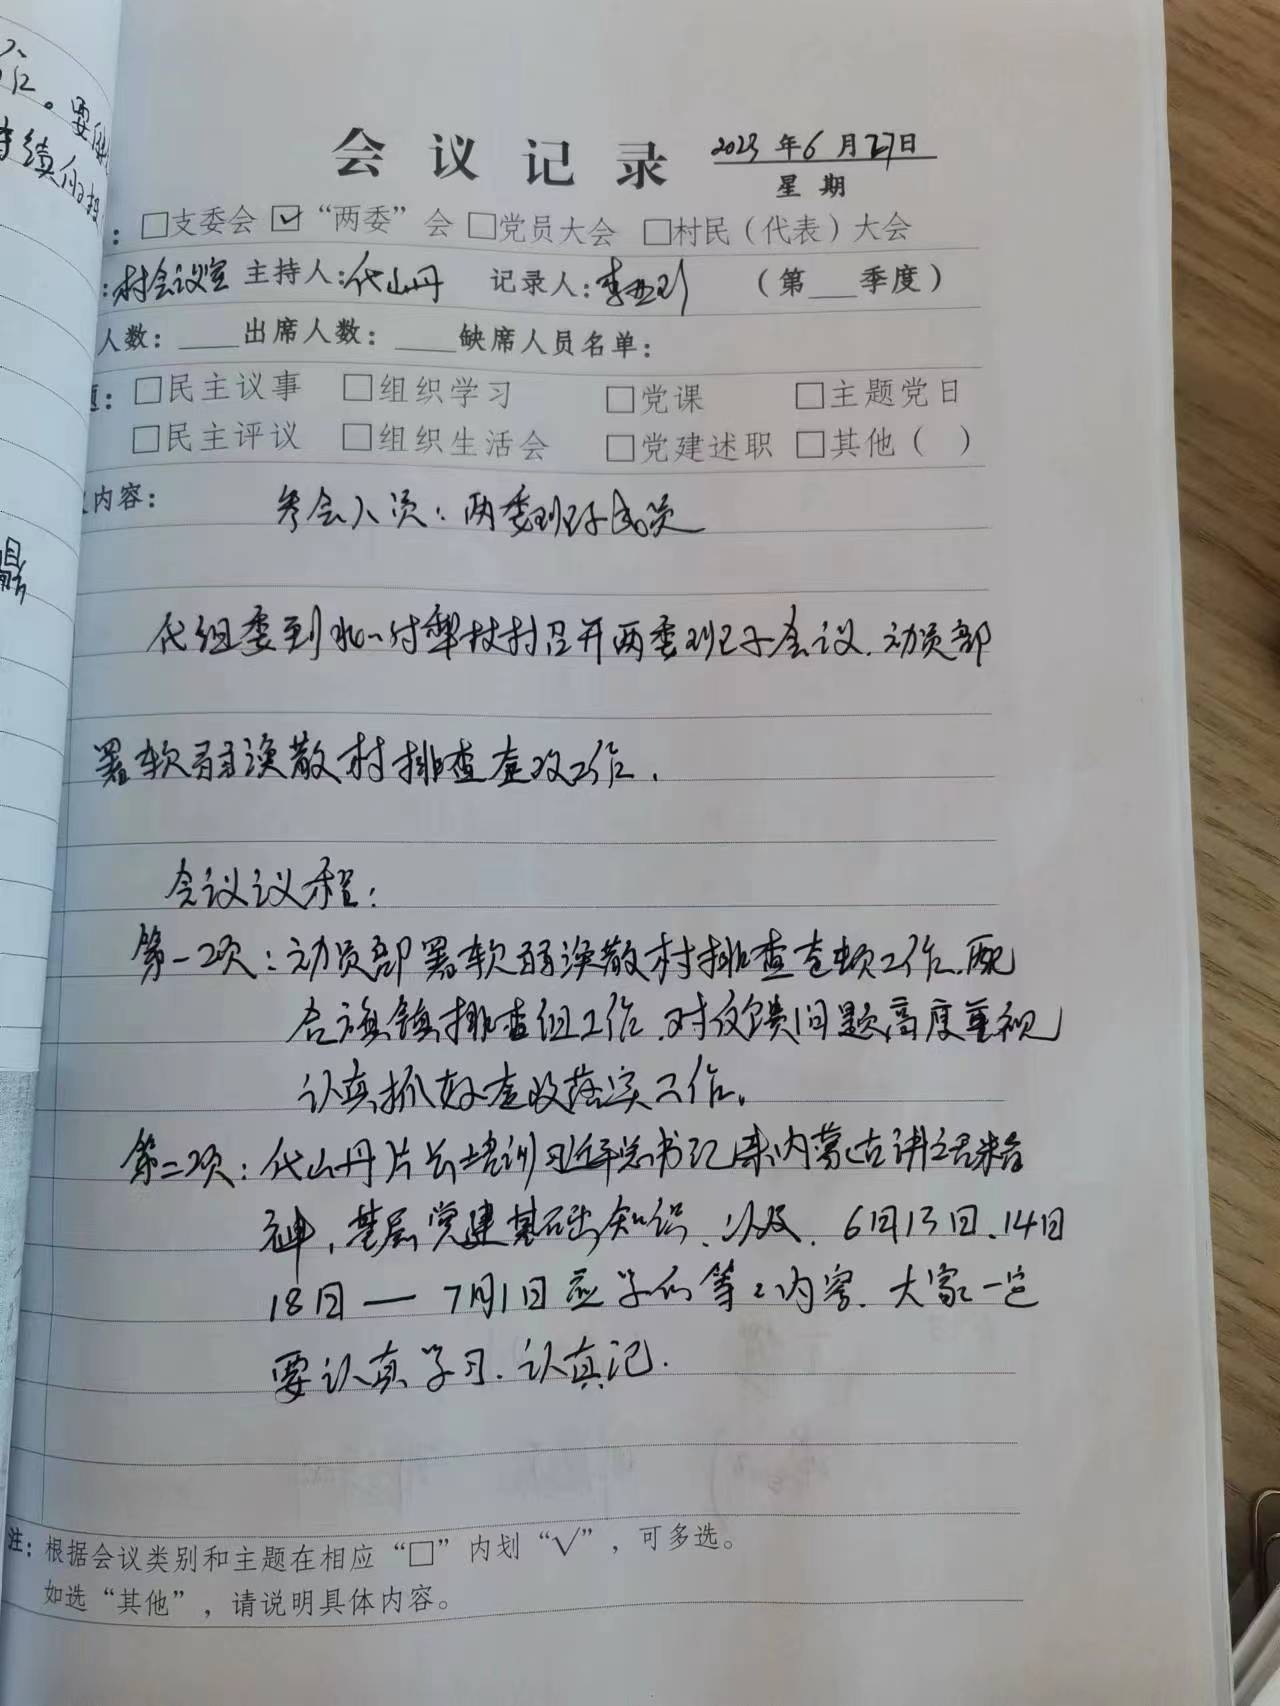 会议记录 2023年6月27日
星期
：□支委会 ☑“两委”会 □党员大会 □村民（代表）大会
：村会议室 主持人：代山丹 记录人：李亚 （第 季度）
人数： 出席人数： 缺席人员名单：
题：□民主议事 □组织学习 □党课 □主题党日
□民主评议 □组织生活会 □党建述职 □其他（ ）
内容：
参会人员：两委班子成员
代组委到 村召开两委班子会议.动员部
署软弱涣散村排查查改工作.
会议议程：
第一项：动员部署软弱涣散村排查 工作.配
合旗镇排查组工作.对反馈问题高度重视
认真抓好 落实工作。
第二项：代山丹片长培训习近平总书记来内蒙古讲话精
神,基层党建基础知识、以及. 6日13日、14日
18日—7月1日应学的等等内容.大家一定
要认真学习.认真记.
注：根据会议类别和主题在相应“□”内划“√”，可多选。
如选“其他”，请说明具体内容。